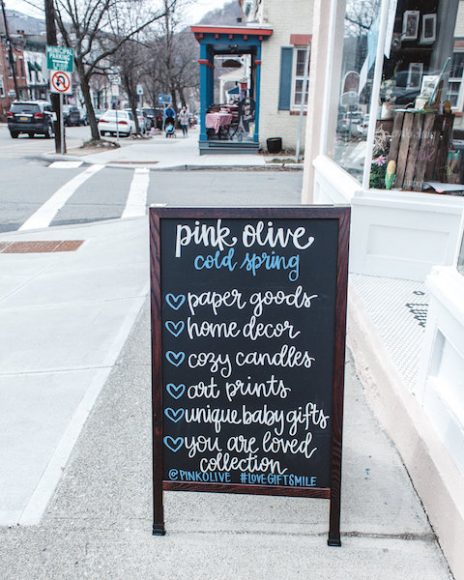 MUNICIPAL
PARKING
pink olive
cold spring
paper goods
home decor
cozy candles
art prints
unique baby gifts
you are loved
collection
@PINKOLIVE #LOVEGIFTSMILE